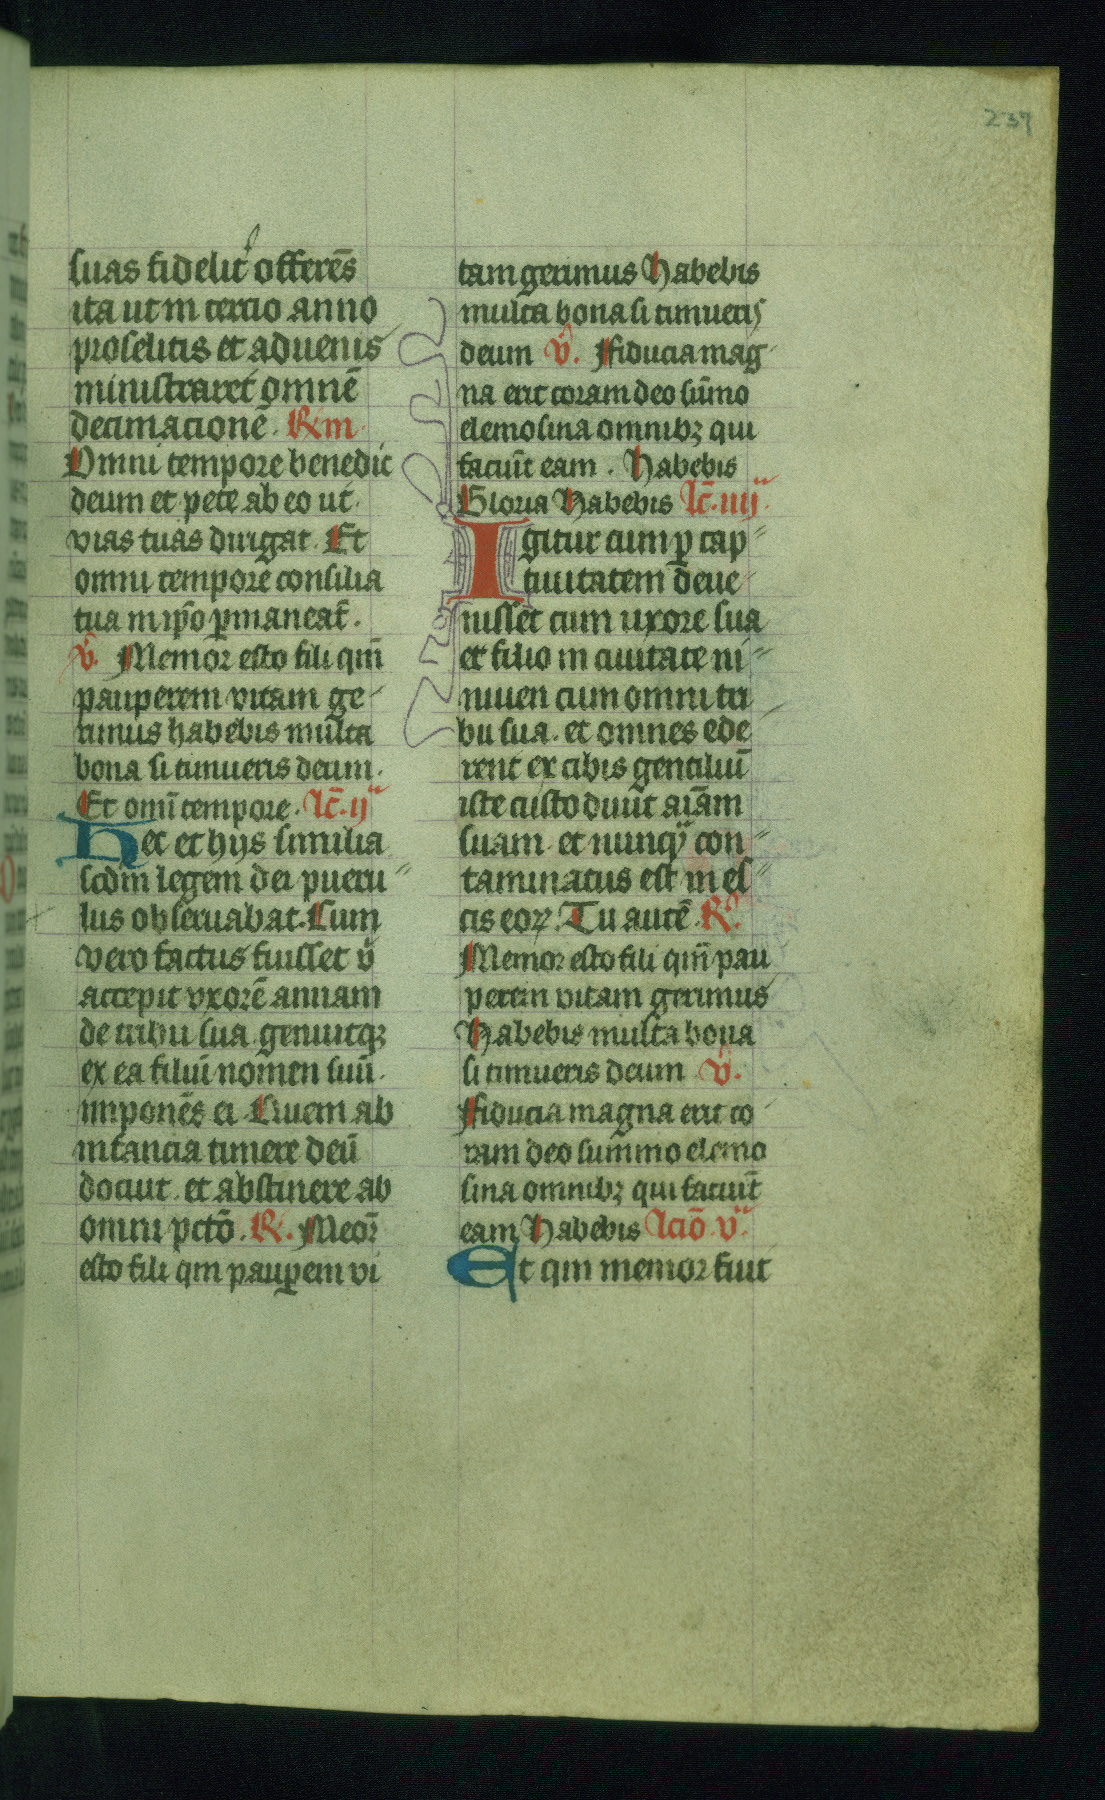 237
suas fidelit offerēs
ita ut in tercio anno
proselitis et aduenis
ministraret omnē
decimacionē. Rm
Omni tempore benedic
deum et pete ab eo ut
vias tuas dirigat. Et
omni tempore consilia
tua in ip̄o ꝑmaneāt.
v̄. Memor esto fili qm̄
pauperem vitam ge
rimus habebis multa
bona si timueris deum.
Et omi̅ tempore. lc̄. ij
Hec et hijs similia
scd̄m legem dei pueru
lus obseruabat. Cum
vero factus fuisset v̄
accepit vxorē annam
de tribu sua genuitqꝫ
ex ea filiū nomen suū
imponēs ei. Quem ab
infancia timere deū
docuit. et abstinere ab
omni pctō. R. Meor̄
esto fili qm pauꝑem vi
tam gerimus Habebis
multa bona si timueris
deum v̄. Fiducia mag
na erit coram deo sūmo
elemosina omnibꝫ qui
faciūt eam. Habebis
Gloria Habebis lc̄. iiij
Igitur cum ꝑ cap
tiuitatem deue
nisset cum uxore sua
et filio in ciuitate ni
niuen cum omni tri
bu sua. et omnes ede
rent ex cibis gentiliū
iste custodiuit aīam
suam et nunqͣ con
taminatus est in es
cis eoꝝ. Tu autē R.
Memor esto fili qm̄ pau
perem vitam gerimus
Habebis multa bona
si timueris deum v̄.
Fiducia magna erit co
ram deo summo elemo
sina omnibꝫ qui faciūt
eam Habebis lciō. v
Et qm memor fuit